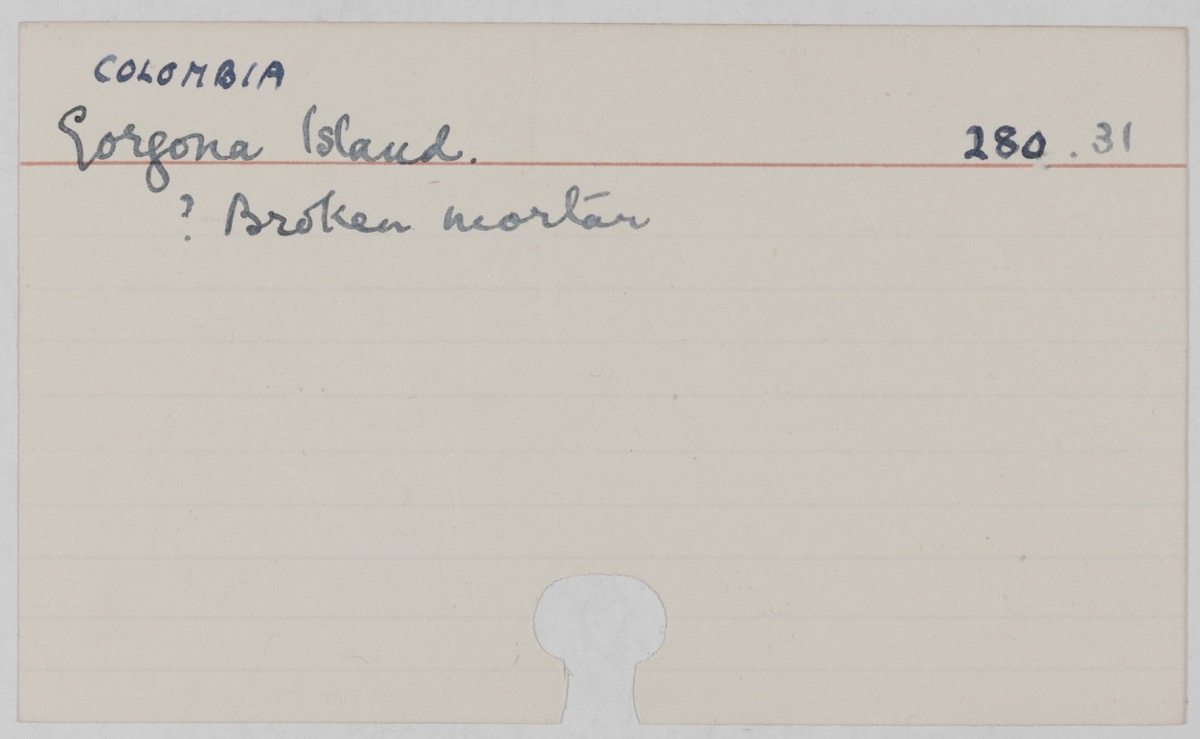 COLOMBIA
Gorgona Island. 280.31
? Broken mortar